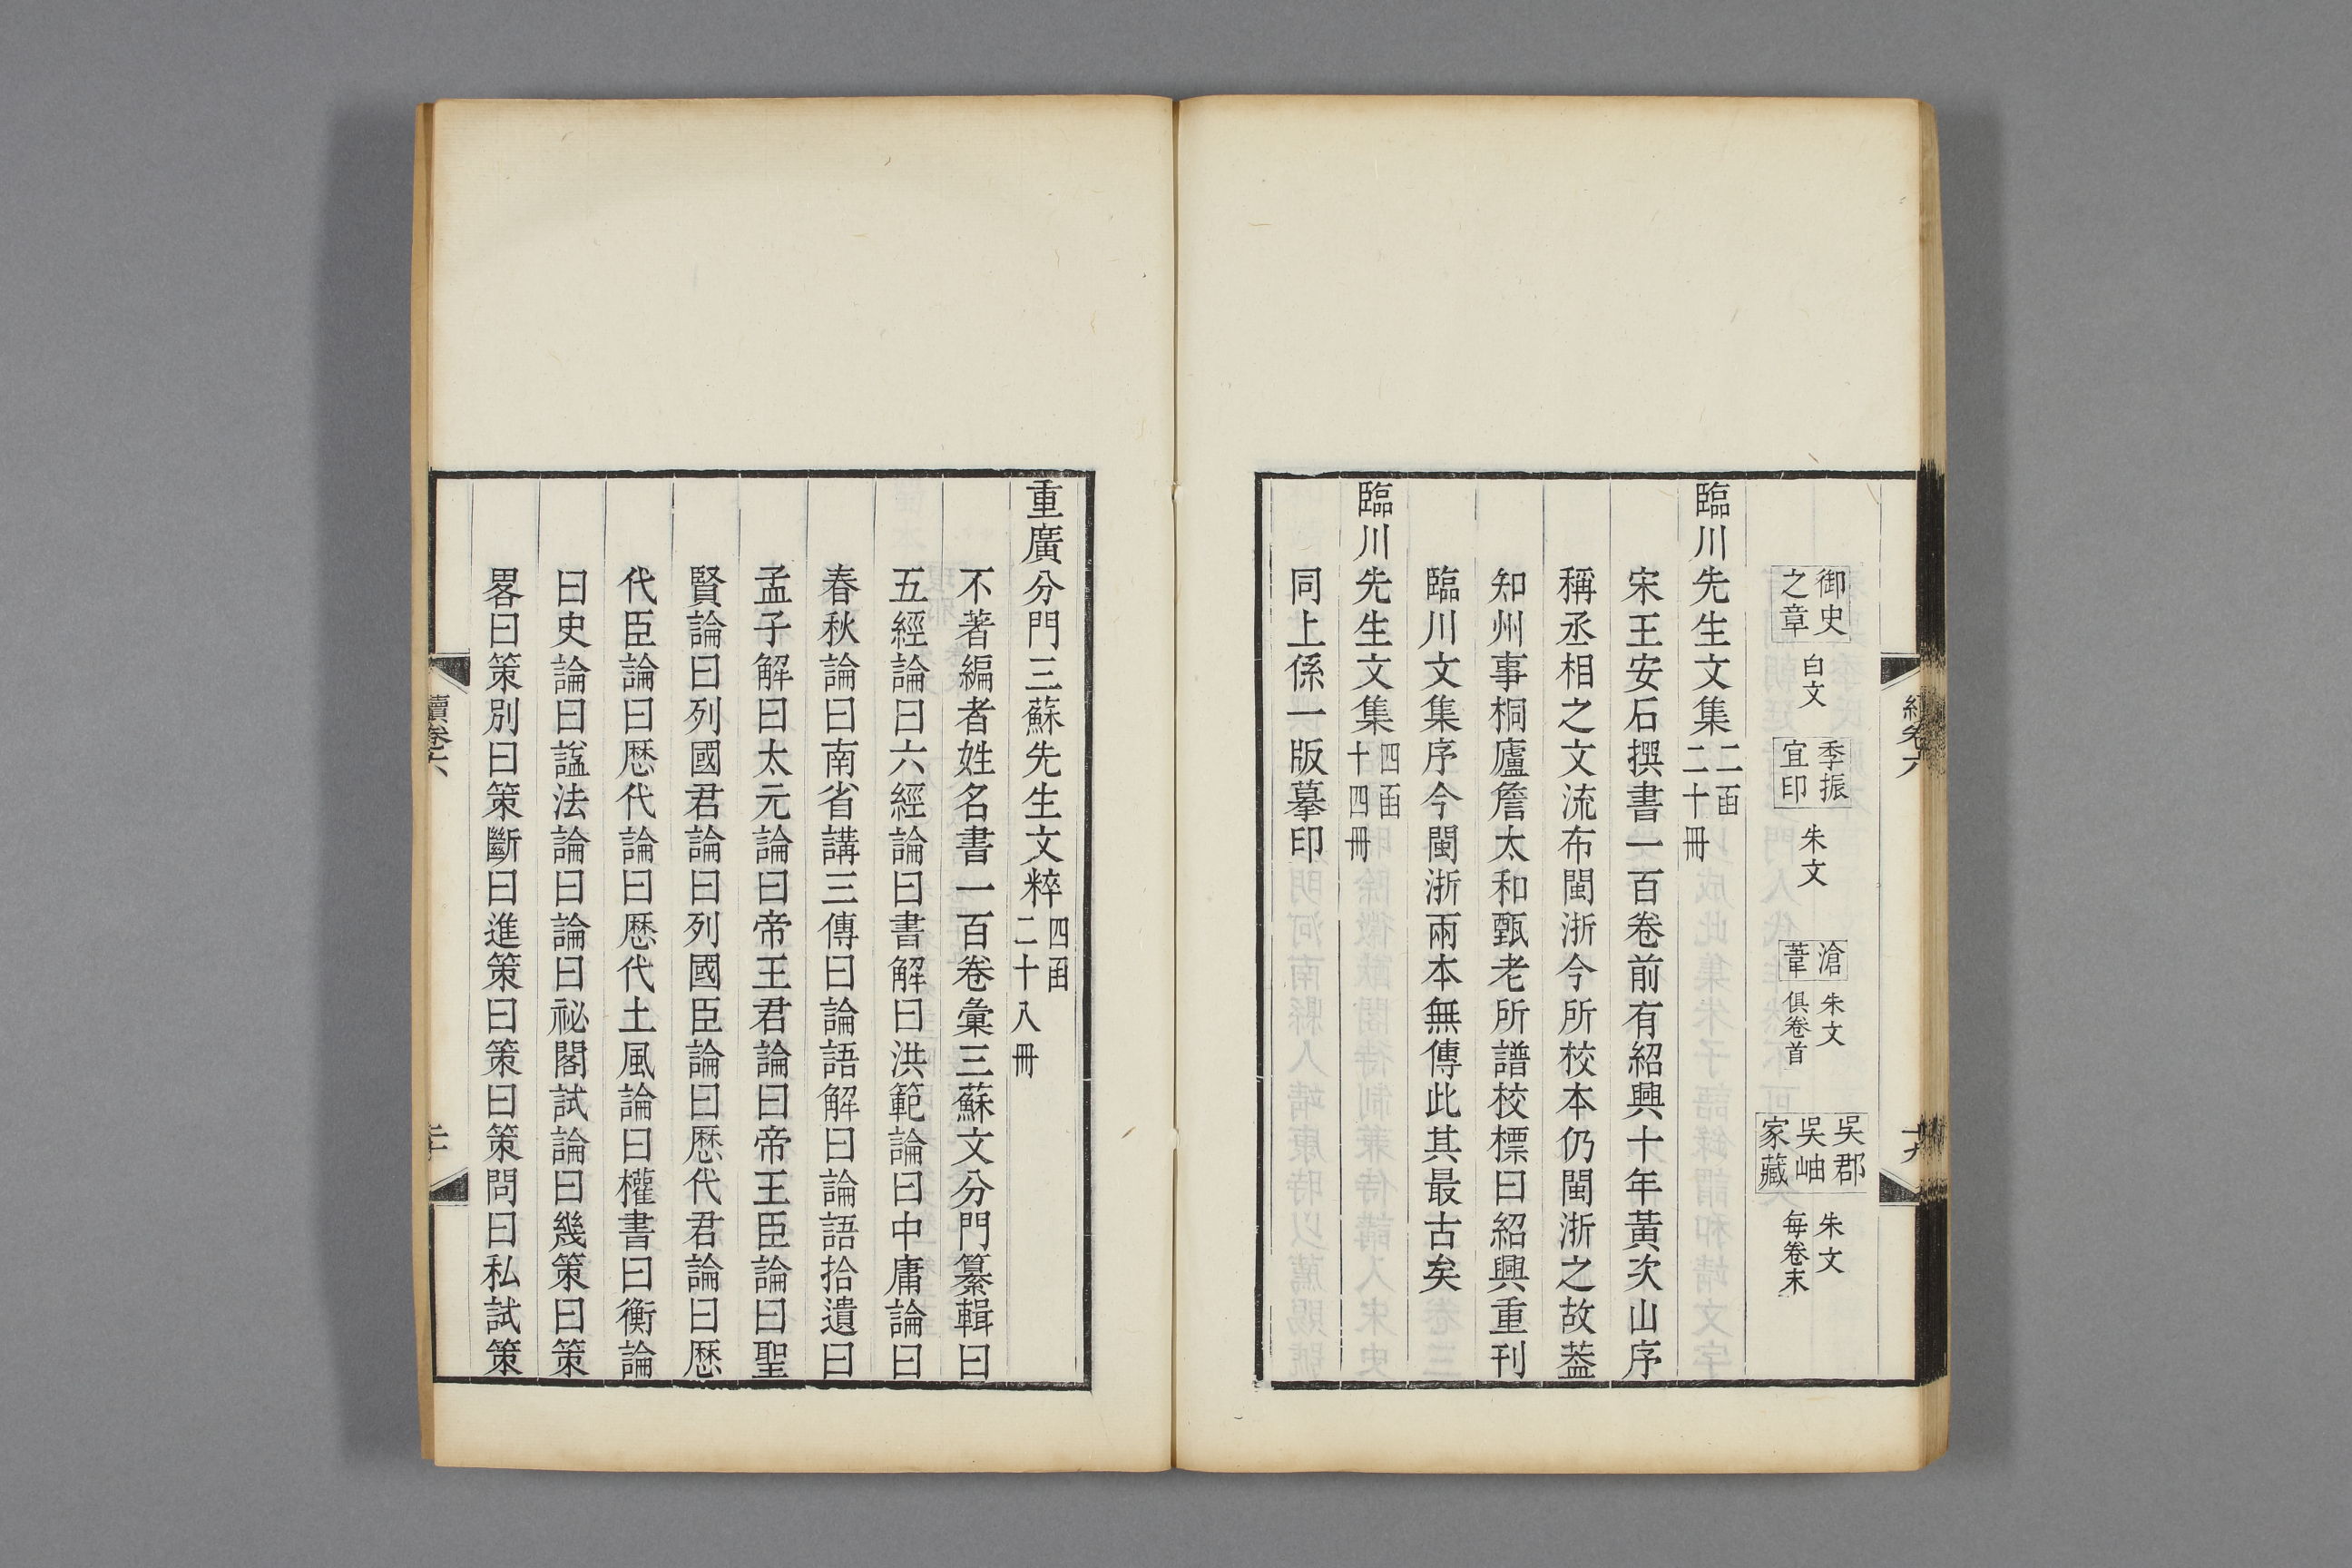 御史之章 白文 季振宜印 朱文 滄葦 朱文俱卷首 吳郡吳岫家藏 朱文每卷末
臨川先生文集 二函二十冊
宋王安石撰書一百卷前有紹興十年黃次山序
稱丞相之文流布閩浙今所校本仍閩浙之故葢
知州事桐廬詹太和甄老所譜校標曰紹興重刊
臨川文集序今閩浙兩本無傳此其最古矣
臨川先生文集 四函十四冊
同上係一版摹印
續卷六
十九
重廣分門三蘇先生文粹 四函二十八冊
不著編者姓名書一百卷彙三蘇文分門纂輯曰
五經論曰六經論曰書解曰洪範論曰中庸論曰
春秋論曰南省講三傳曰論語解曰論語拾遺曰
孟子解曰太元論曰帝王君論曰帝王臣論曰聖
賢論曰列國君論曰列國臣論曰歷代君論曰歷
代臣論曰歷代論曰歷代土風論曰權書曰衡論
曰史論曰諡法論曰論曰祕閣試論曰幾策曰策
畧曰策別曰策斷曰進策曰策曰策問曰私試策
續卷六
二十